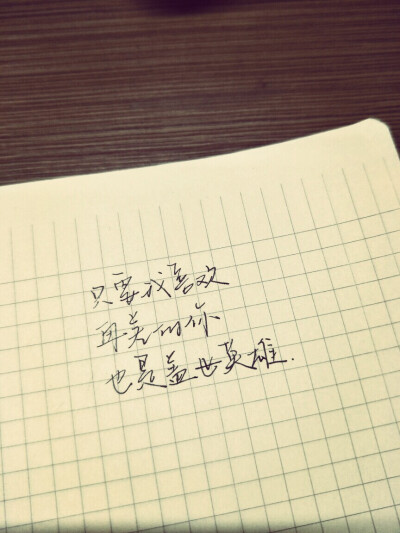 只要我喜欢
再差的你
也是盖世英雄.